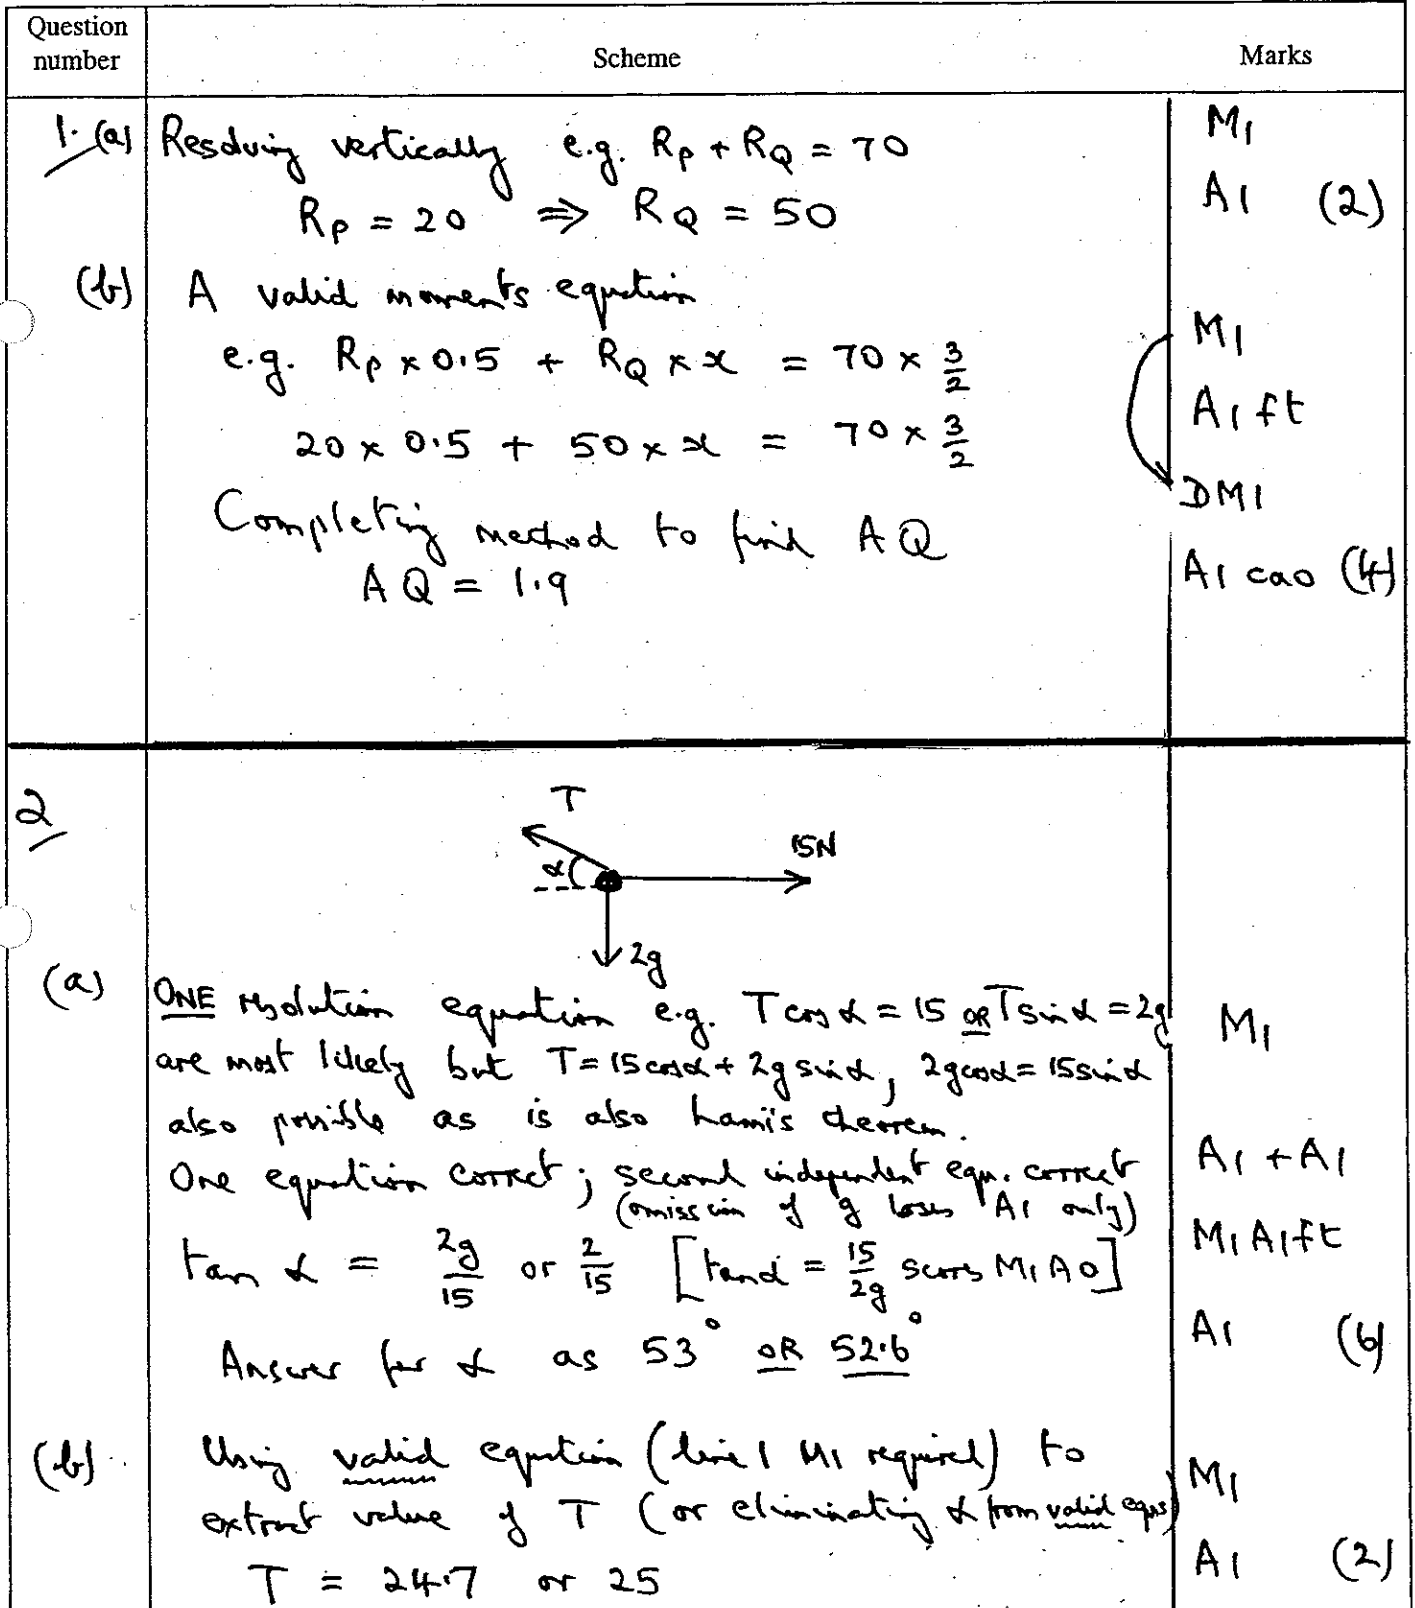 Question number Scheme Marks
1. (a) Resolving vertically e.g. R_P + R_Q = 70 M1
R_P = 20 ⇒ R_Q = 50 A1 (2)
(b) A valid moments equation
e.g. R_P × 0.5 + R_Q × x = 70 × 3/2 M1
20 × 0.5 + 50 × x = 70 × 3/2 A1 ft
Completing method to find AQ DM1
AQ = 1.9 A1 cao (4)
2
T
15N
α
2g
(a) ONE resolution equation e.g. T cos α = 15 OR T sin α = 2g M1
are most likely but T = 15 cos α + 2g sin α, 2g cos α = 15 sin α
also possible as is also Lami's theorem.
One equation correct; second independent equn. correct A1 + A1
(omission of g loses A1 only)
tan α = 2g/15 or 2/15 [tan α = 15/2g scores M1 A0] M1 A1 ft
Answer for α as 53° OR 52.6° A1 (6)
(b) Using valid equation (line 1 M1 required) to
extract value of T (or eliminating α from valid eqns) M1
T = 24.7 or 25 A1 (2)